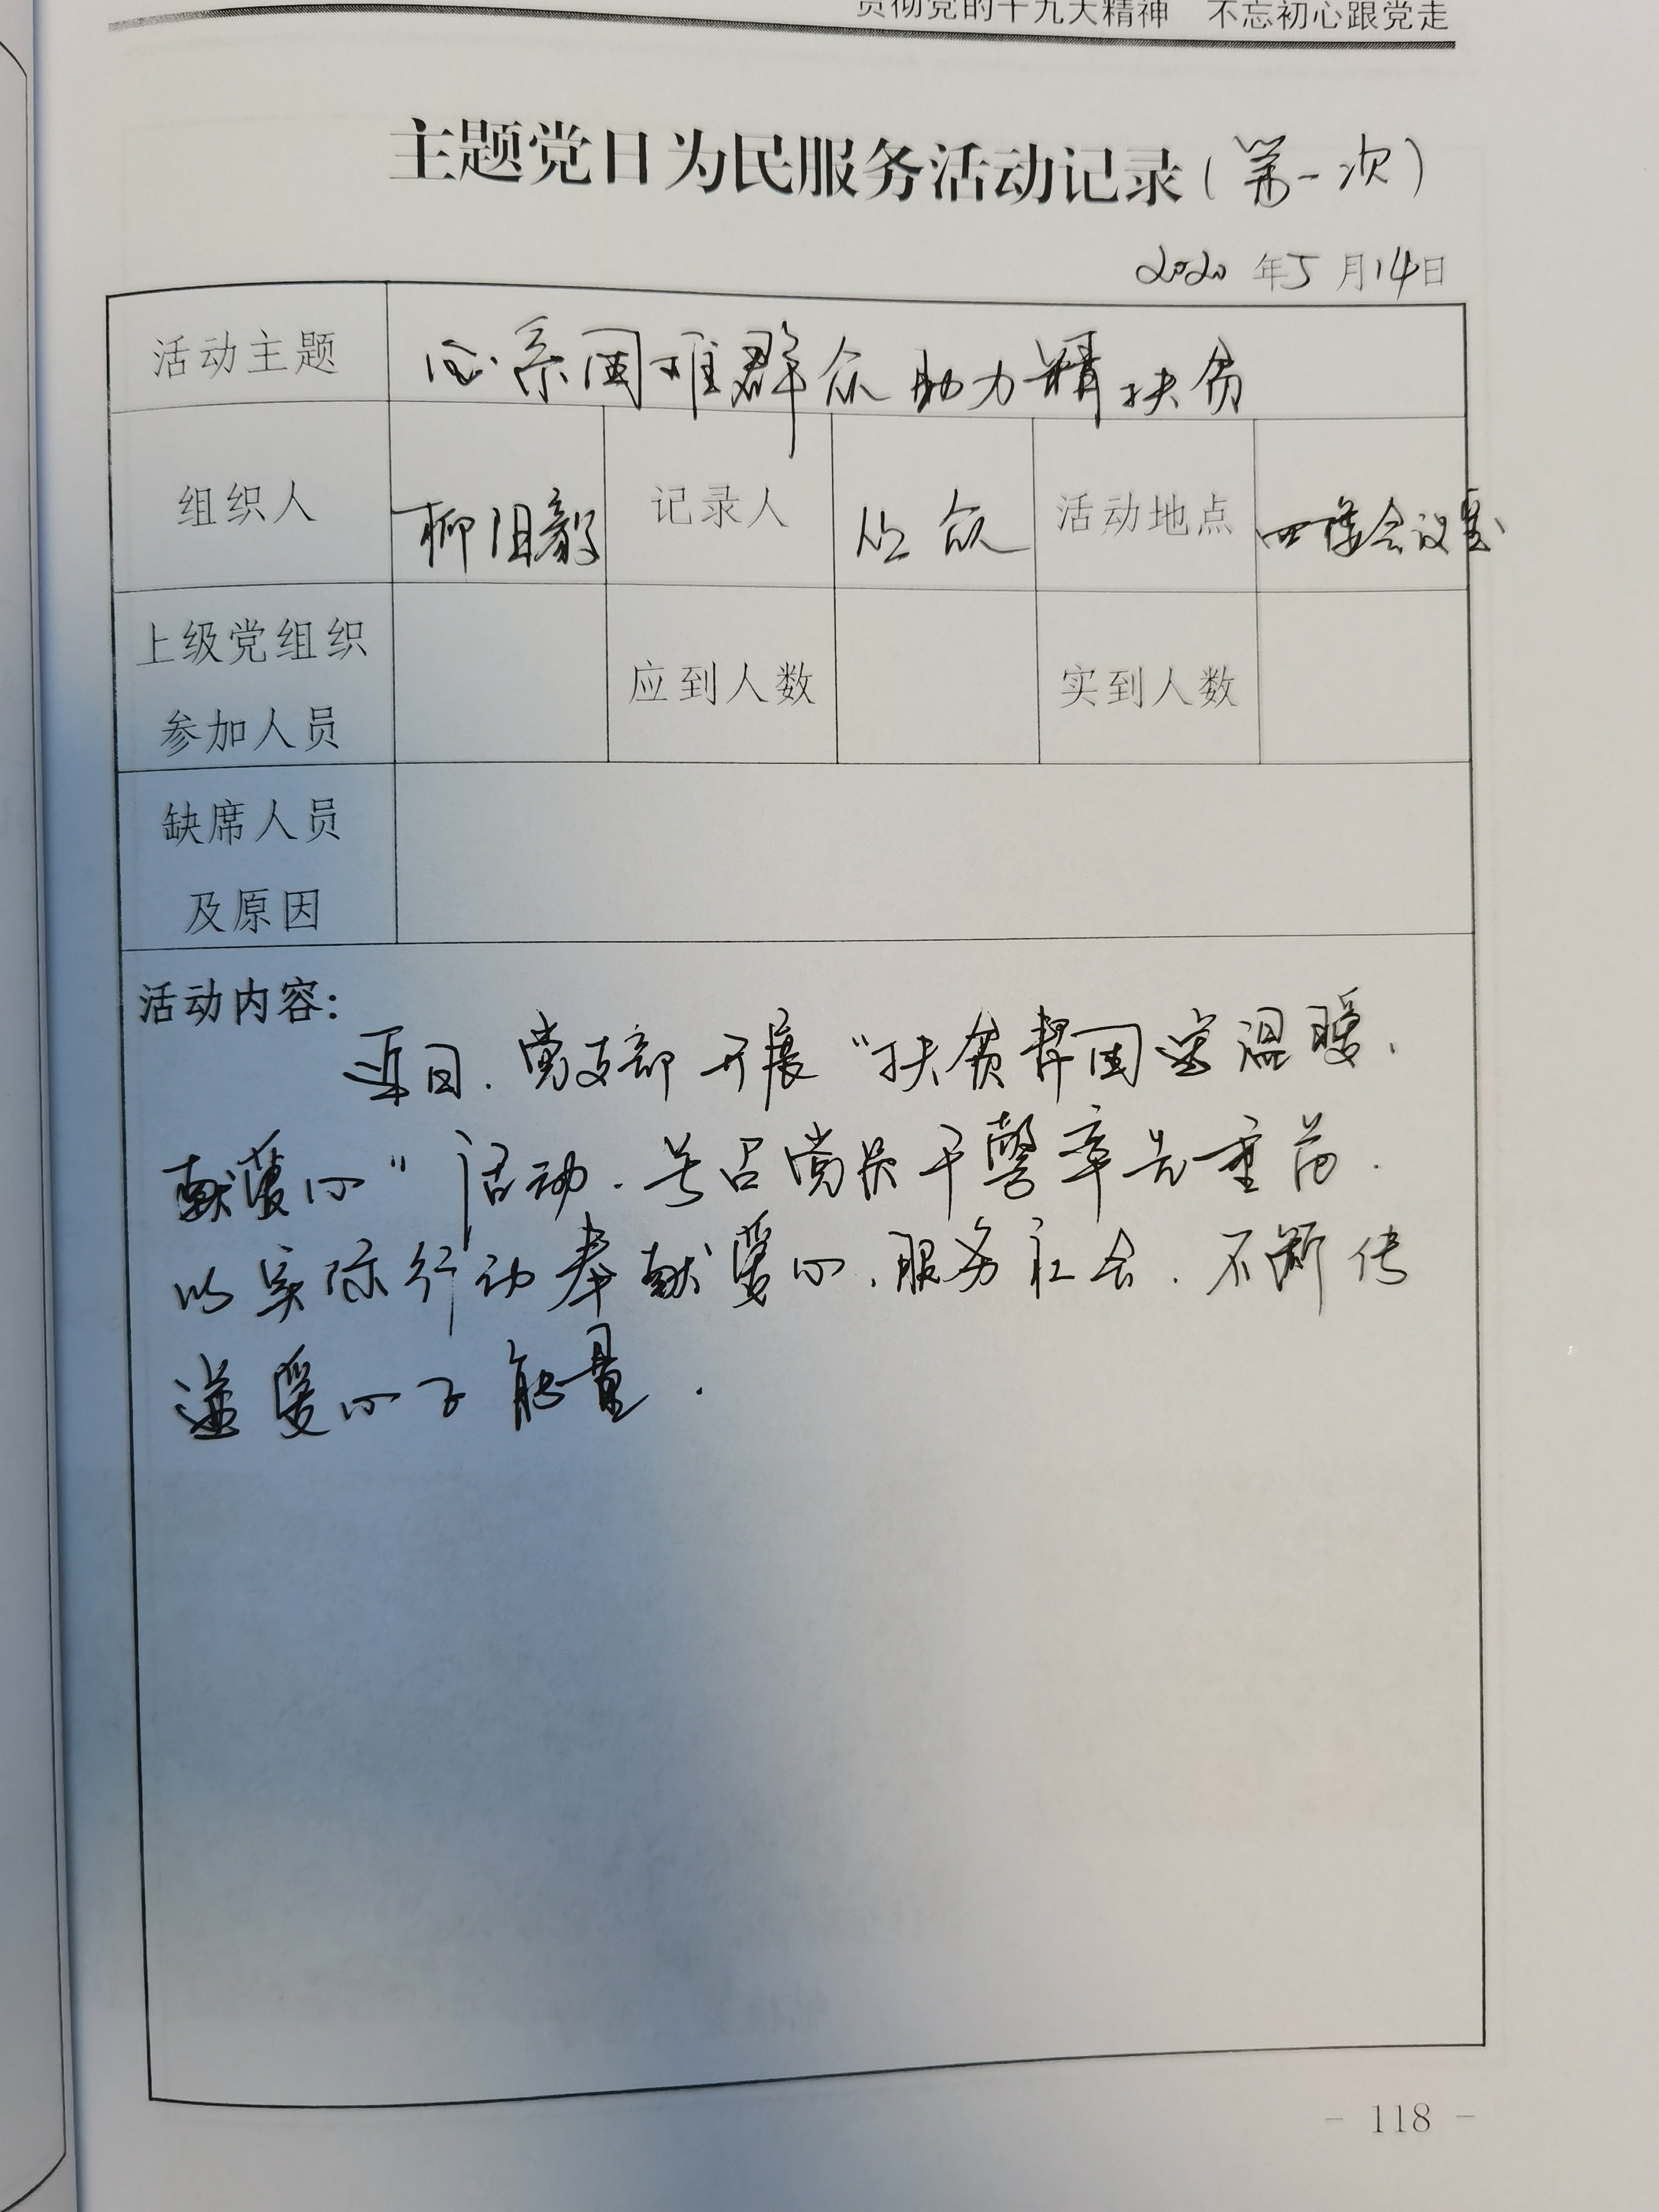 贯彻党的十九大精神 不忘初心跟党走
主题党日为民服务活动记录(第一次)
2020年5月14日
活动主题 心系困难群众助力精扶贫
组织人 柳 记录人 众 活动地点 四楼会议室
上级党组织
参加人员
应到人数 实到人数
缺席人员
及原因
活动内容:
近日.党支部开展“扶贫帮困送温暖、
献爱心”活动.号召党员干警率先垂范.
以实际行动奉献爱心.服务社会.不断传
递爱心正能量.
- 118 -